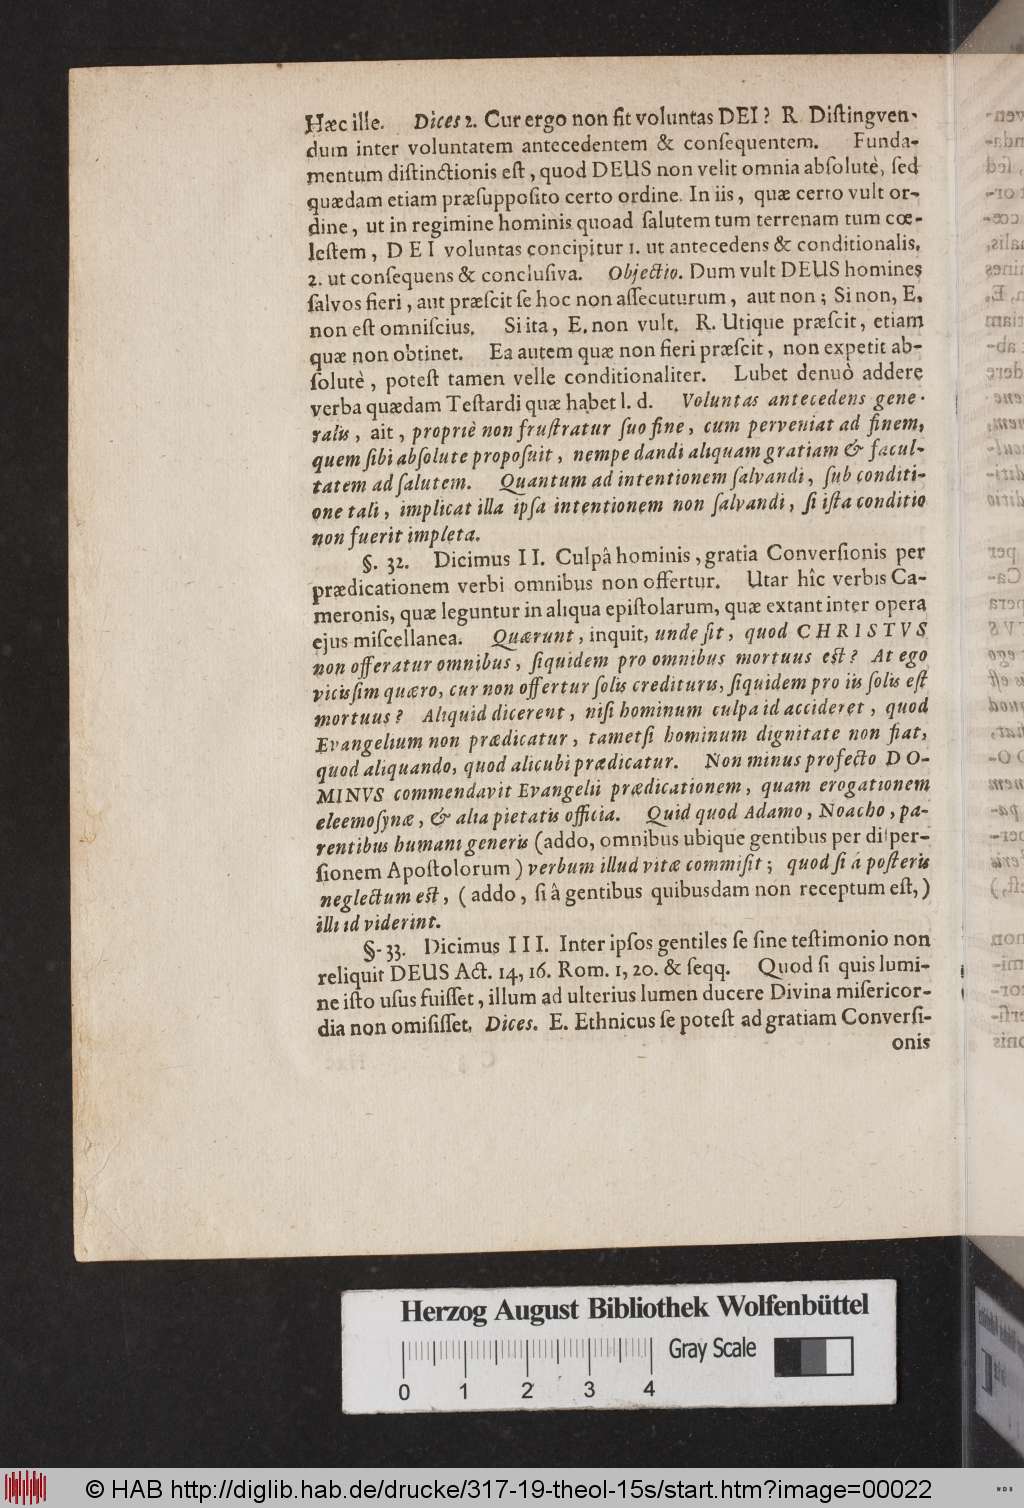 Hæc ille. Dices 2. Cur ergo non fit voluntas DEI? R. Diſtingven-
dum inter voluntatem antecedentem & conſequentem. Funda-
mentum diſtinctionis eſt, quod DEUS non velit omnia abſolutè, ſed
quædam etiam præſuppoſito certo ordine. In iis, quæ certo vult or-
dine, ut in regimine hominis quoad ſalutem tum terrenam tum cœ-
leſtem, DEI voluntas concipitur 1. ut antecedens & conditionalis,
2. ut conſequens & concluſiva. Objectio. Dum vult DEUS homines
ſalvos fieri, aut præſcit ſe hoc non aſſecuturum, aut non; Si non, E,
non eſt omniſcius. Si ita, E. non vult. R. Utique præſcit, etiam
quæ non obtinet. Ea autem quæ non fieri præſcit, non expetit ab-
ſolutè, poteſt tamen velle conditionaliter. Lubet denuò addere
verba quædam Teſtardi quæ habet l. d. Voluntas antecedens gene-
ralis, ait, propriè non fruſtratur ſuo fine, cum perveniat ad finem,
quem ſibi abſolute propoſuit, nempe dandi aliquam gratiam & facul-
tatem ad ſalutem. Quantum ad intentionem ſalvandi, ſub conditi-
one tali, implicat illa ipſa intentionem non ſalvandi, ſi iſta conditio
non fuerit impleta.
§. 32. Dicimus II. Culpâ hominis, gratia Converſionis per
prædicationem verbi omnibus non offertur. Utar hîc verbis Ca-
meronis, quæ leguntur in aliqua epiſtolarum, quæ extant inter opera
ejus miſcellanea. Quærunt, inquit, unde ſit, quod CHRISTVS
non offeratur omnibus, ſiquidem pro omnibus mortuus eſt? At ego
viciſſim quæro, cur non offertur ſolis credituris, ſiquidem pro iis ſolis eſt
mortuus? Aliquid dicerent, niſi hominum culpa id accideret, quod
Evangelium non prædicatur, tametſi hominum dignitate non fiat,
quod aliquando, quod alicubi prædicatur. Non minus profecto DO-
MINVS commendavit Evangelii prædicationem, quam erogationem
eleemoſynæ, & alia pietatis officia. Quid quod Adamo, Noacho, pa-
rentibus humani generis (addo, omnibus ubique gentibus per diſper-
ſionem Apoſtolorum) verbum illud vitæ commiſit; quod ſi á poſteris
neglectum eſt, (addo, ſi â gentibus quibusdam non receptum eſt,)
illi id viderint.
§. 33. Dicimus III. Inter ipſos gentiles ſe ſine teſtimonio non
reliquit DEUS Act. 14, 16. Rom. 1, 20. & ſeqq. Quod ſi quis lumi-
ne iſto uſus fuiſſet, illum ad ulterius lumen ducere Divina miſericor-
dia non omiſiſſet. Dices. E. Ethnicus ſe poteſt ad gratiam Converſi-
onis
Herzog August Bibliothek Wolfenbüttel
Gray Scale
0 1 2 3 4
© HAB http://diglib.hab.de/drucke/317-19-theol-15s/start.htm?image=00022